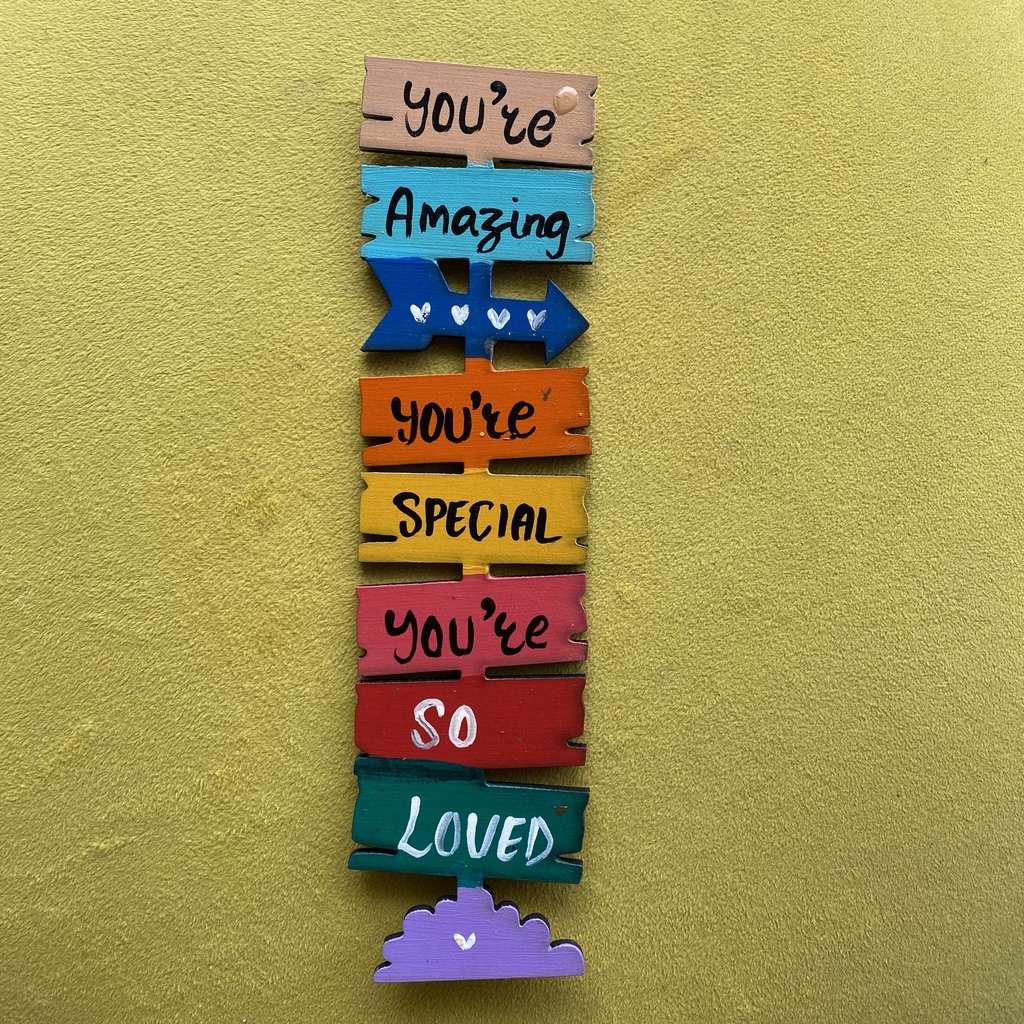 you're
Amazing
you're
SPECIAL
you're
SO
LOVED